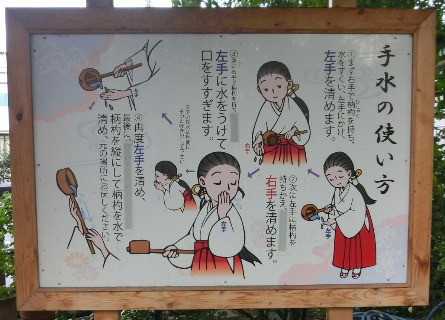 手水の使い方
①まず右手で柄杓を持ち、
水をすくい、左手にかけ、
左手を清めます。
②次に左手に柄杓を
持ちかえ、
右手を清めます。
左手に水をうけて
口をすすぎます。
④再度左手を清め、
最後に、
柄杓を縦にして柄杓を水で
清め、元の場所に
左手
右手